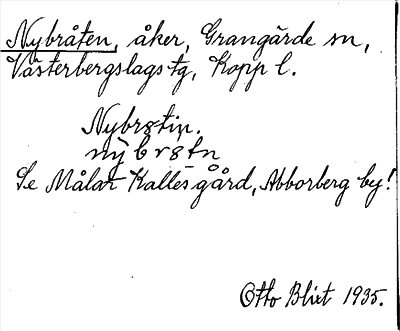 Nybråten, åker, Grangärde sn,
Västerbergslags tg, Kopp l.
Nybrøtin.
nỳbrøtn
Se Målar Kalles gård, Abborberg by!
Otto Blixt 1935.